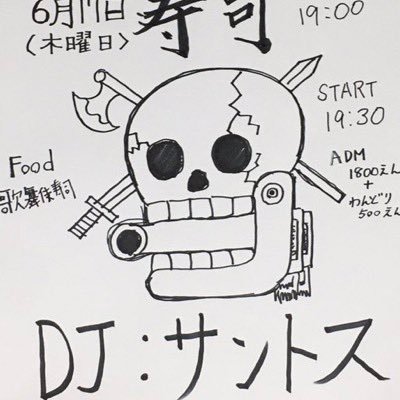 6月17日
(木曜日)
寿司
19:00
START
19:30
Food
歌舞伎寿司
ADM
1800えん
+
わんどり
500えん
DJ:サントス